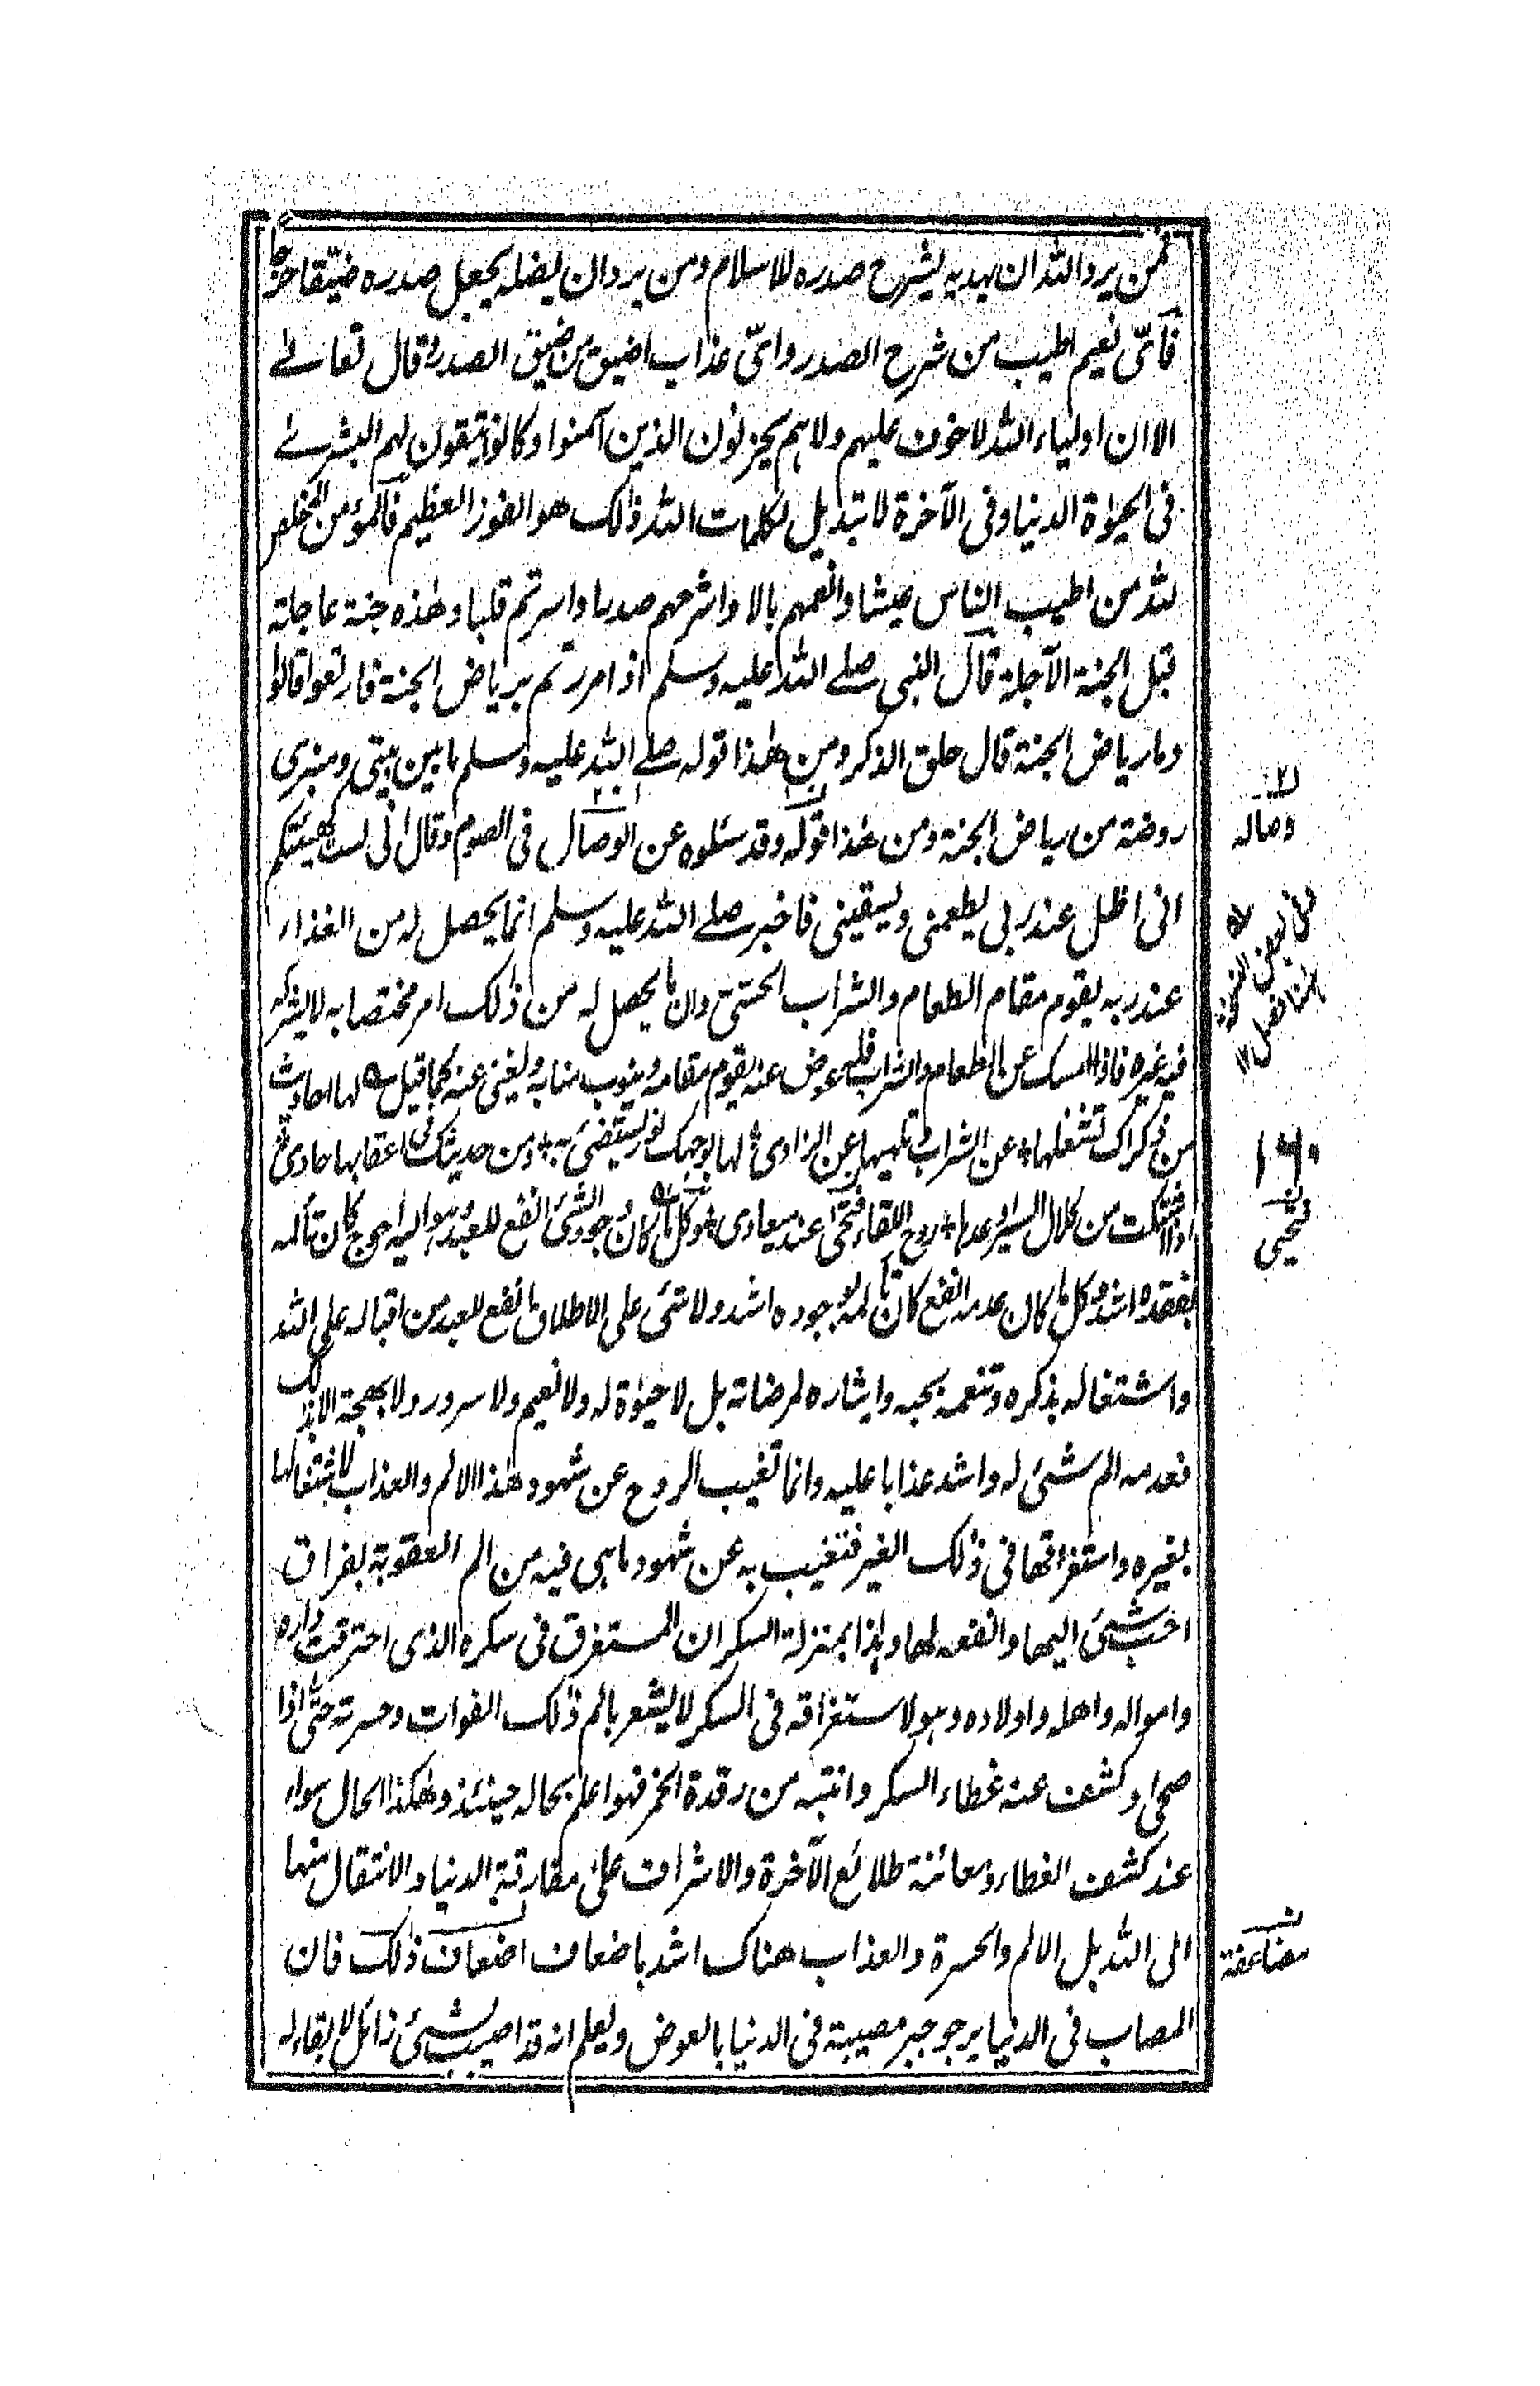 فمن يرد الله ان يهديه يشرح صدره للاسلام ومن يرد ان يضله يجعل صدره ضيقا حرجا
فاىّ نعيم اطيب من شرح الصدر واىّ عذاب اضيق من ضيق الصدر وقال تعالى
الا ان اولياء الله لا خوف عليهم ولا هم يحزنون الذين آمنوا وكانوا يتقون لهم البشرى
فى الحيوة الدنيا وفى الآخرة لا تبديل لكلمات الله ذلك هو الفوز العظيم فالمؤمن المخلص
لله من اطيب الناس عيشا وانعمهم بالا واشرحهم صدرا واسرّهم قلبا وهذه جنة عاجلة
قبل الجنة الآجلة قال النبى صلى الله عليه وسلم اذا مررتم برياض الجنة فارتعوا قالوا
وما رياض الجنة قال حلق الذكر ومن هذا قوله صلى الله عليه وسلم ما بين بيتى ومنبرى
روضة من رياض الجنة ومن هذا قوله وقد سئلوه عن الوصال فى الصوم وقال انى لست كهيئتكم
انى اظل عند ربى يطعمنى ويسقينى فاخبر صلى الله عليه وسلم انما يحصل له من الغذاء
عند ربه يقوم مقام الطعام والشراب الحسّى وان ما يحصل له من ذلك امر مختصا به لا يشركه
فيه غيره فاذا امسك عن الطعام والشراب فله عوض عنه يقوم مقامه وينوب منابه ويغنى عنه كما قيل لها احاديث
من ذكراك تشغلها عن الشراب وتلهيها عن الزادى لها بوجهك نور يستضئ به ومن حديثك فى اعقابها حادى
اذا اشتكت من كلال السير اوعدها روح اللقاء فتحى عند ميعادى وكل ما كان وجود الشئ انفع للعبد وهو اليه احوج كان تألمه
بفقده اشد وكل ما كان عدمه انفع كان تألمه بوجوده اشد ولا شئ على الاطلاق انفع للعبد من اقباله على الله
واشتغاله بذكره وتنعمه بحبه وايثاره لمرضاته بل لا حيوة له ولا نعيم ولا سرور ولا بهجة الا بذلك
فعدمه الم شئ له واشد عذابا عليه وانما تغيب الروح عن شهود هذا الالم والعذاب لاشتغالها
بغيره واستغراقها فى ذلك الغير فتغيب به عن شهود ما هى فيه من الم العقوبة بفراق
احب شئ اليها وانفعه لها وهذا بمنزلة السكران المستغرق فى سكره الذى احترقت داره
وامواله واهله واولاده وهو لاستغراقه فى السكر لا يشعر بالم ذلك الفوات وحسرته حتى اذا
صحى وكشف عنه غطاء السكر وانتبه من رقدة الخمر فهو اعلم بحاله حينئذ وهكذا الحال سواء
عند كشف الغطاء ومعائنة طلائع الآخرة والاشراف على مفارقة الدنيا والانتقال منها
الى الله بل الالم والحسرة والعذاب هناك اشد باضعاف اضعاف ذلك فان
المصاب فى الدنيا يرجو جبر مصيبة فى الدنيا بالعوض ويعلم انه قد اصيب بشئ زائل لا بقاء له
وصاله
١٦٠
فتحيى
مضاعفة